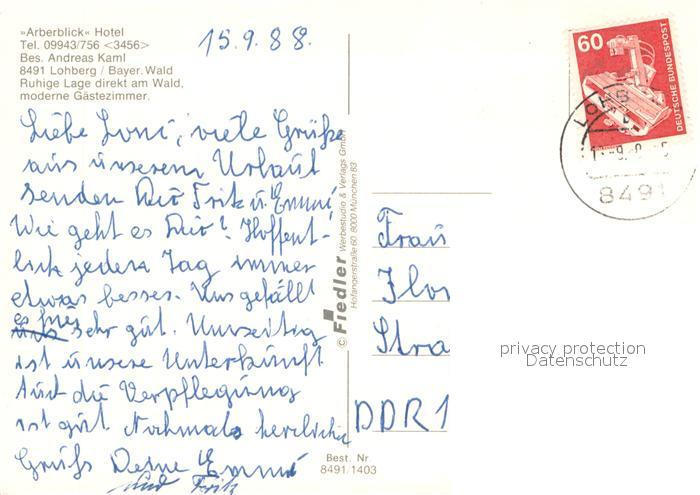 »Arberblick« Hotel
Tel. 09943/756 <3456>
Bes. Andreas Kaml
8491 Lohberg / Bayer. Wald
Ruhige Lage direkt am Wald,
moderne Gästezimmer.
15.9.88.
Liebe Loni, viele Grüße
aus unserem Urlaub
senden Dir Fritz u. Emmi
Wie geht es Dir? Hoffent-
lich jeden Tag immer
etwas besser. Uns gefällt
es hier sehr gut. Einzeitig
ist unsere Unterkunft
Auch die Verpflegung
ist gut. Nochmals herzliche
Grüße Deine Emmi
und Fritz
© Fiedler Werbestudio & Verlags GmbH
Hofangerstraße 60, 8000 München 83
Best. Nr.
8491/1403
60
DEUTSCHE BUNDESPOST
LOHB
8491
Frau
Flo
Stra
DDR 1
privacy protection
Datenschutz